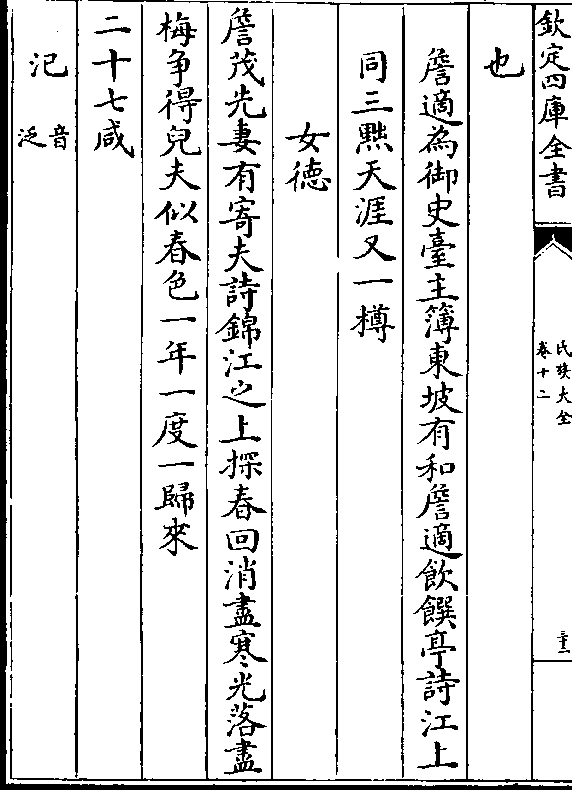 欽定四庫全書
氏族大全
卷十二
三十一
也
詹適為御史臺主簿東坡有和詹適飲饌亭詩江上
同三黙天涯又一樽
女徳
詹茂先妻有寄夫詩錦江之上探春回消盡寒光落盡
梅争得兒夫似春色一年一度一歸來
二十七咸
氾音泛